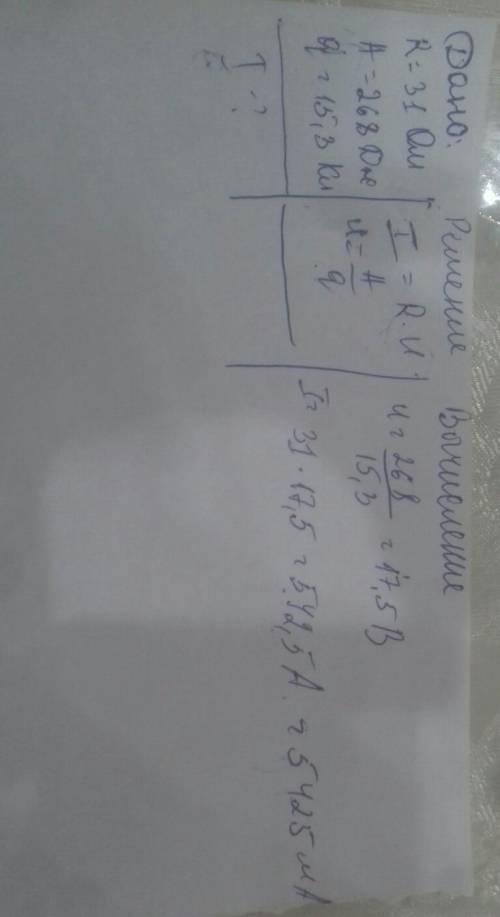 Дано:
R = 31 Ом
A = 268 Дж
q = 15,3 Кл
I - ?
Решение
I = R · U
U = A / q
Вычисление
U = 268 / 15,3 = 17,5 В
I = 31 · 17,5 = 542,5 А = 5425 мА